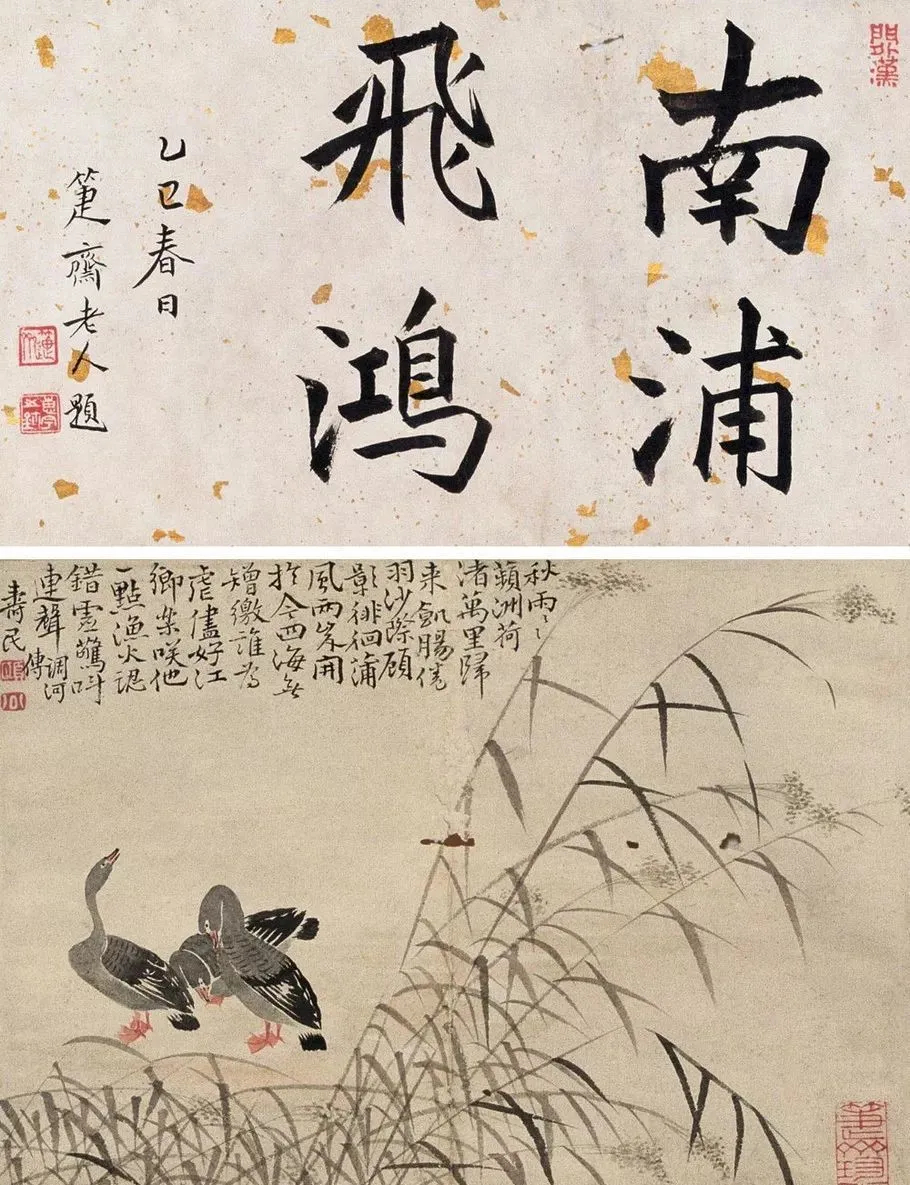 門外漢
南浦
飛鴻
乙巳春日
箑齋老人題
秋雨〻
蘋洲荷
渚萬里歸
来飢腸倦
羽沙際顧
影徘徊蒲
風兩岸開
於今四海無
矰繳誰為
虐儘好江
鄉樂咲他
一點漁火誤
錯虛驚叫
連聲 調河
傳
壽民